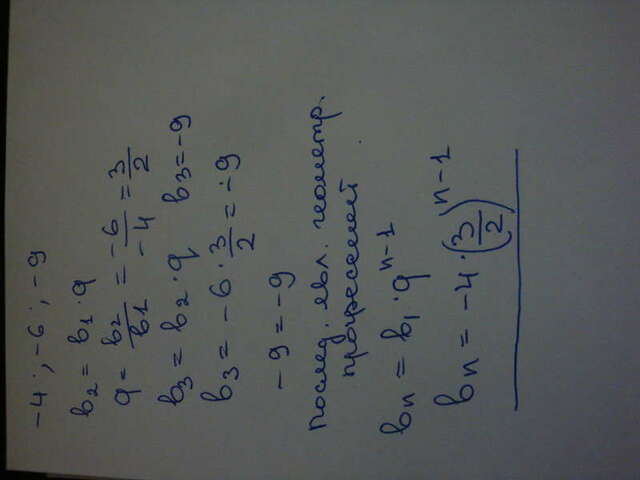 -4; -6; -9
b₂ = b₁·q
q = b₂/b₁ = -6/-4 = 3/2
b₃ = b₂·q b₃ = -9
b₃ = -6·3/2 = -9
-9 = -9
послед. явл. геометр.
прогрессией
bn = b₁·q^(n-1)
bn = -4·(3/2)^(n-1)